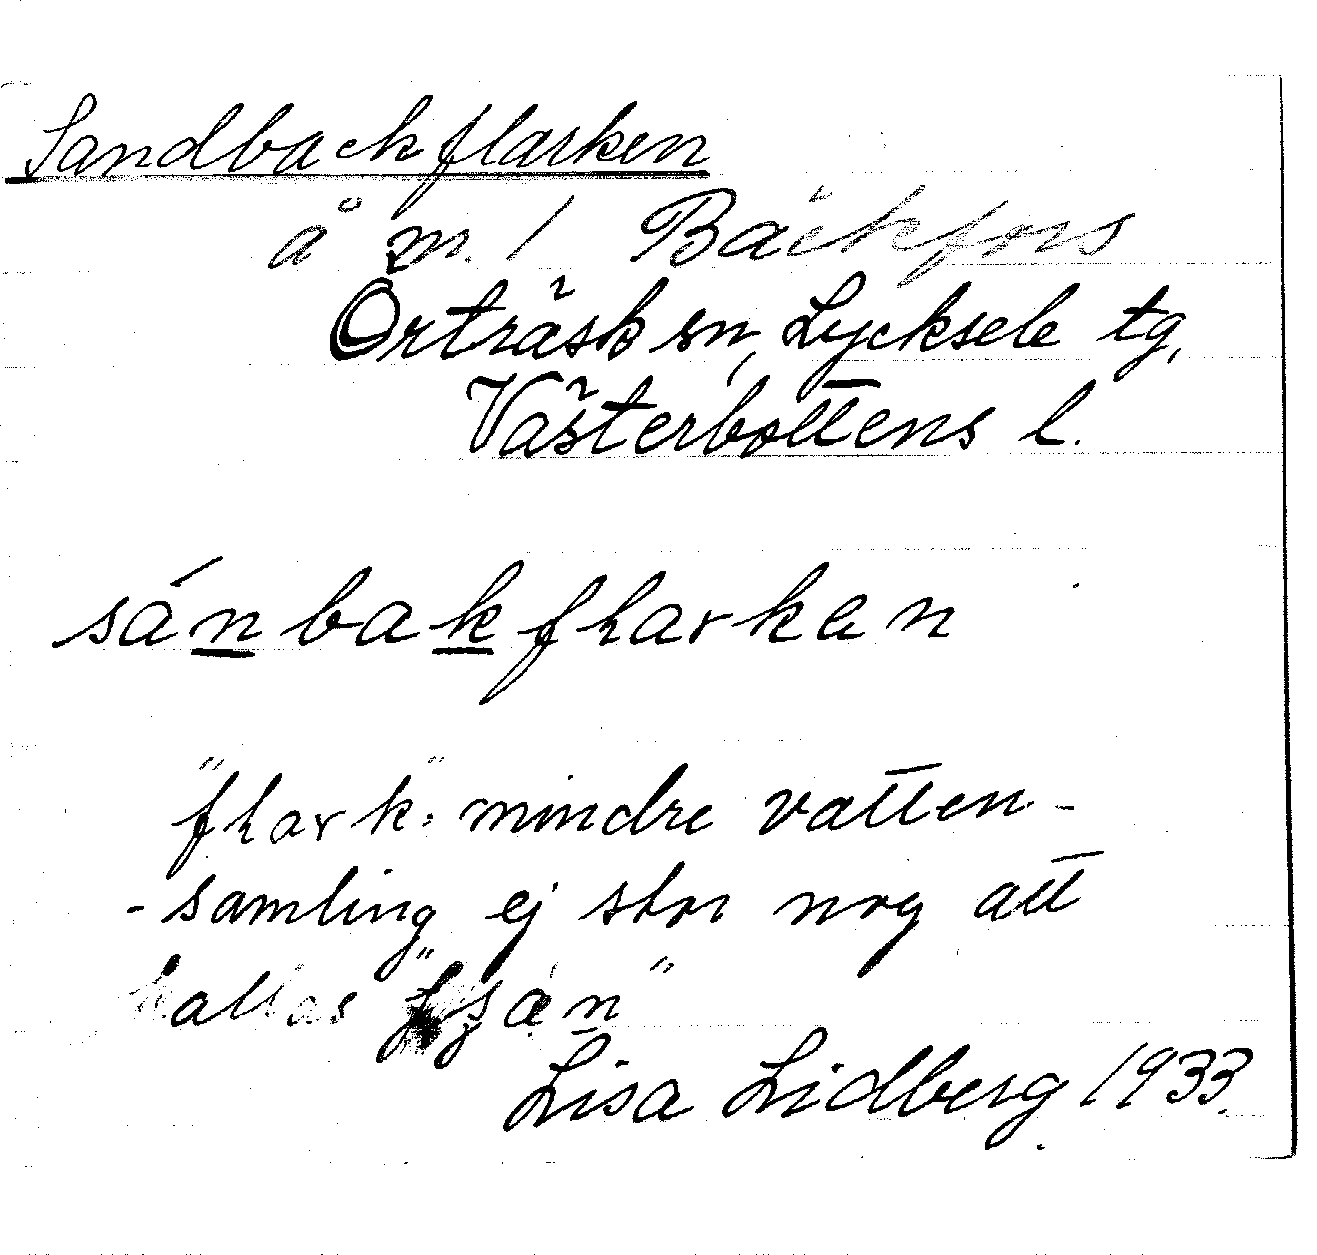 Sandbackflarken
å m. / Bäckfors
Örträsk sn, Lycksele tg,
Västerbottens l.
sánbakfharkan
"fhark": mindre vatten-
-samling ej stor nog att
kallas
Lisa Lidberg 1933.